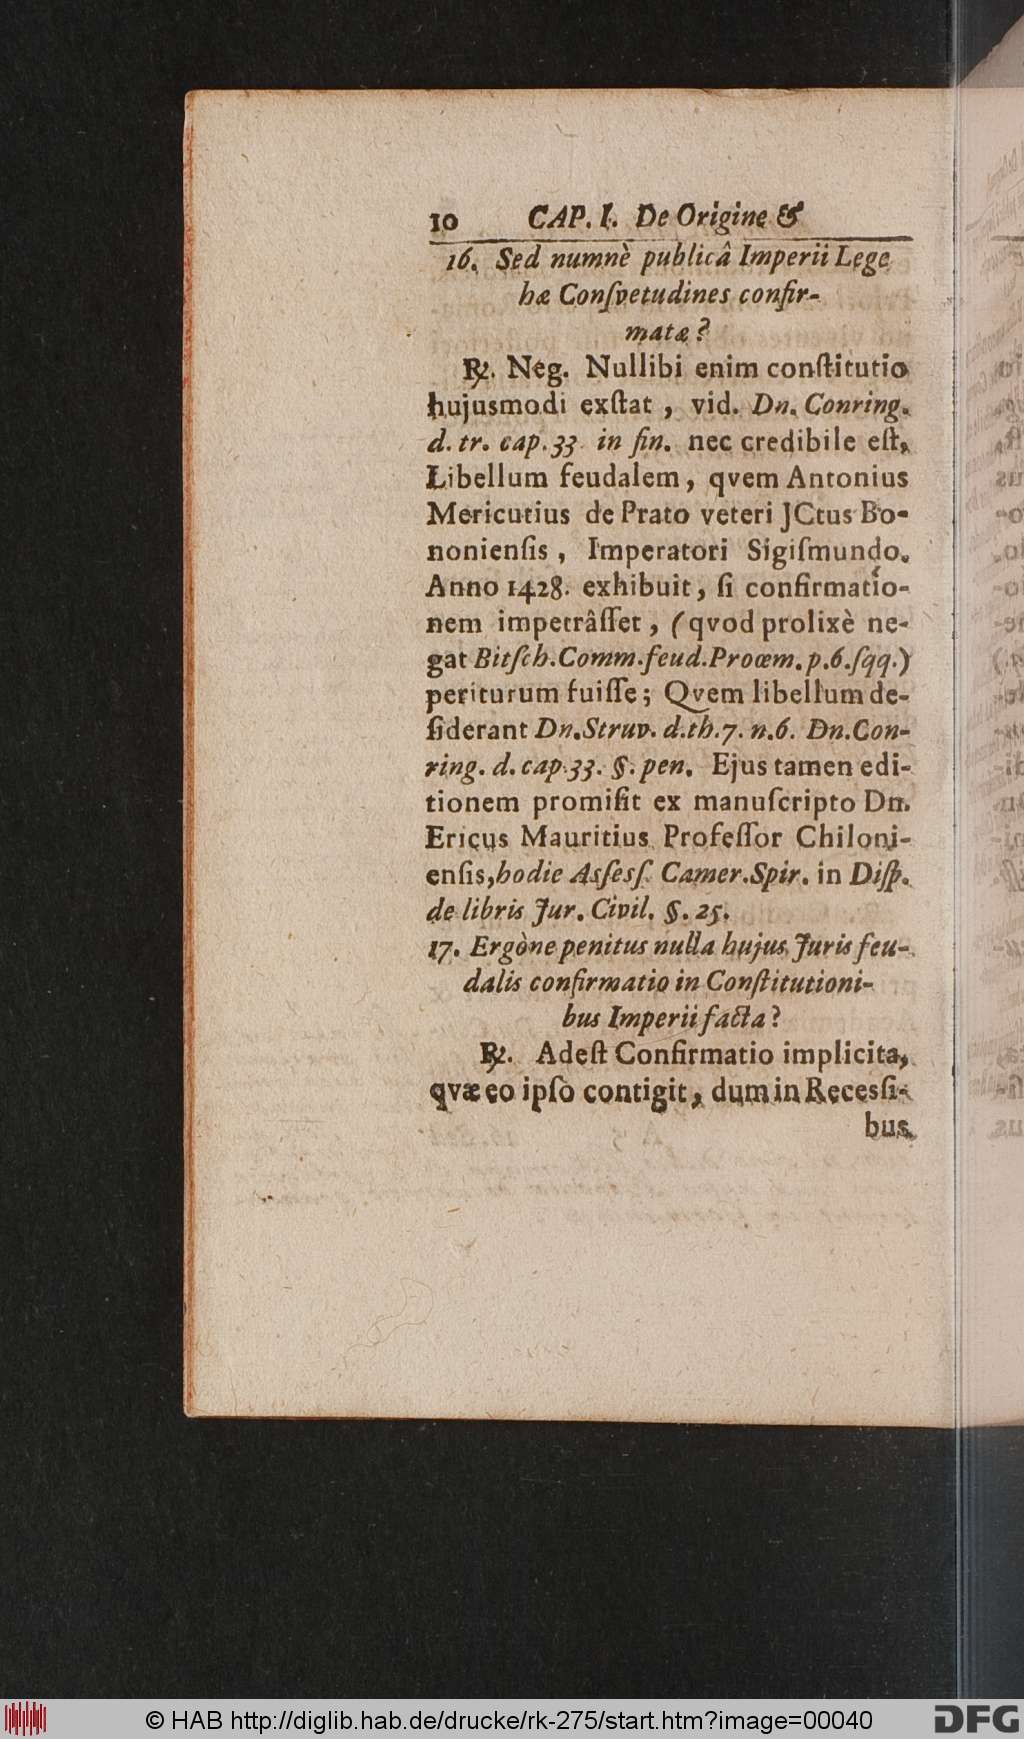 10 CAP. I. De Origine &
16. Sed numnè publicâ Imperii Lege
hæ Conſvetudines confir-
matæ?
℞. Neg. Nullibi enim conſtitutio
hujusmodi exſtat, vid. Dn. Conring.
d. tr. cap. 33 in fin. nec credibile eſt,
Libellum feudalem, qvem Antonius
Mericutius de Prato veteri JCtus Bo-
nonienſis, Imperatori Sigiſmundo.
Anno 1428. exhibuit, ſi confirmatio-
nem impetrâſſet, (qvod prolixè ne-
gat Bitſch. Comm. feud. Proœm. p. 6. ſqq.)
periturum fuiſſe; Qvem libellum de-
ſiderant Dn. Struv. d. th. 7. n. 6. Dn. Con-
ring. d. cap. 33. §. pen. Ejus tamen edi-
tionem promiſit ex manuſcripto Dn.
Ericus Mauritius Profeſſor Chiloni-
enſis, hodie Asſesſ. Camer. Spir. in Diſp.
de libris Jur. Civil. §. 25.
17. Ergòne penitus nulla hujus Juris feu-
dalis confirmatio in Conſtitutioni-
bus Imperii facta?
℞. Adeſt Confirmatio implicita,
qvæ eo ipſo contigit, dum in Recesſi-
bus
© HAB http://diglib.hab.de/drucke/rk-275/start.htm?image=00040
DFG